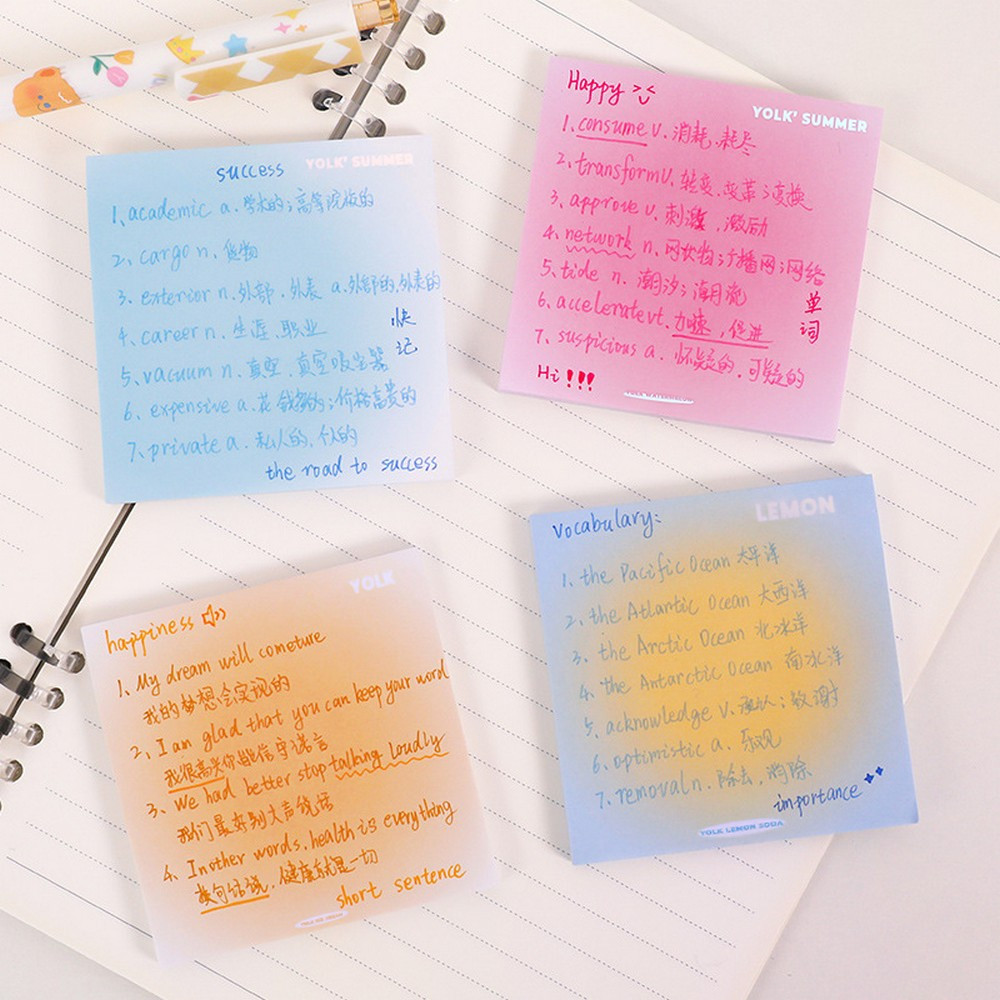 success
YOLK' SUMMER
1、academic a. 学术的；高等院校的
2、cargo n. 货物
3、exterior n. 外部、外表 a.外部的,外表的
4、career n. 生涯、职业
快记
5、vacuum n. 真空、真空吸尘器
6、expensive a. 花钱多的；价格高贵的
7、private a. 私人的,个人的
the road to success
Happy
YOLK' SUMMER
1、consume v. 消耗,耗尽
2、transform v. 转变、变革；变换
3、approve v. 刺激,激励
4、network n. 网状物；广播网；网络
5、tide n. 潮汐；海月流
6、accelerate vt. 加速,促进
7、suspicious a. 怀疑的,可疑的
单词
Hi!!!
YOLK
happiness
1、My dream will cometure
我的梦想会实现的
2、I am glad that you can keep your word
我很高兴你能信守诺言
3、We had better stop talking loudly
我们最好别大声说话
4、Inother words, health is everything
换句话说,健康就是一切
short sentence
Vocabulary:
LEMON
1、the Pacific Ocean 太平洋
2、the Atlantic Ocean 大西洋
3、the Arctic Ocean 北冰洋
4、the Antarctic Ocean 南冰洋
5、acknowledge v. 承认；致谢
6、optimistic a. 乐观
7、removal n. 除去、消除
importance
YOLK LEMON SODA